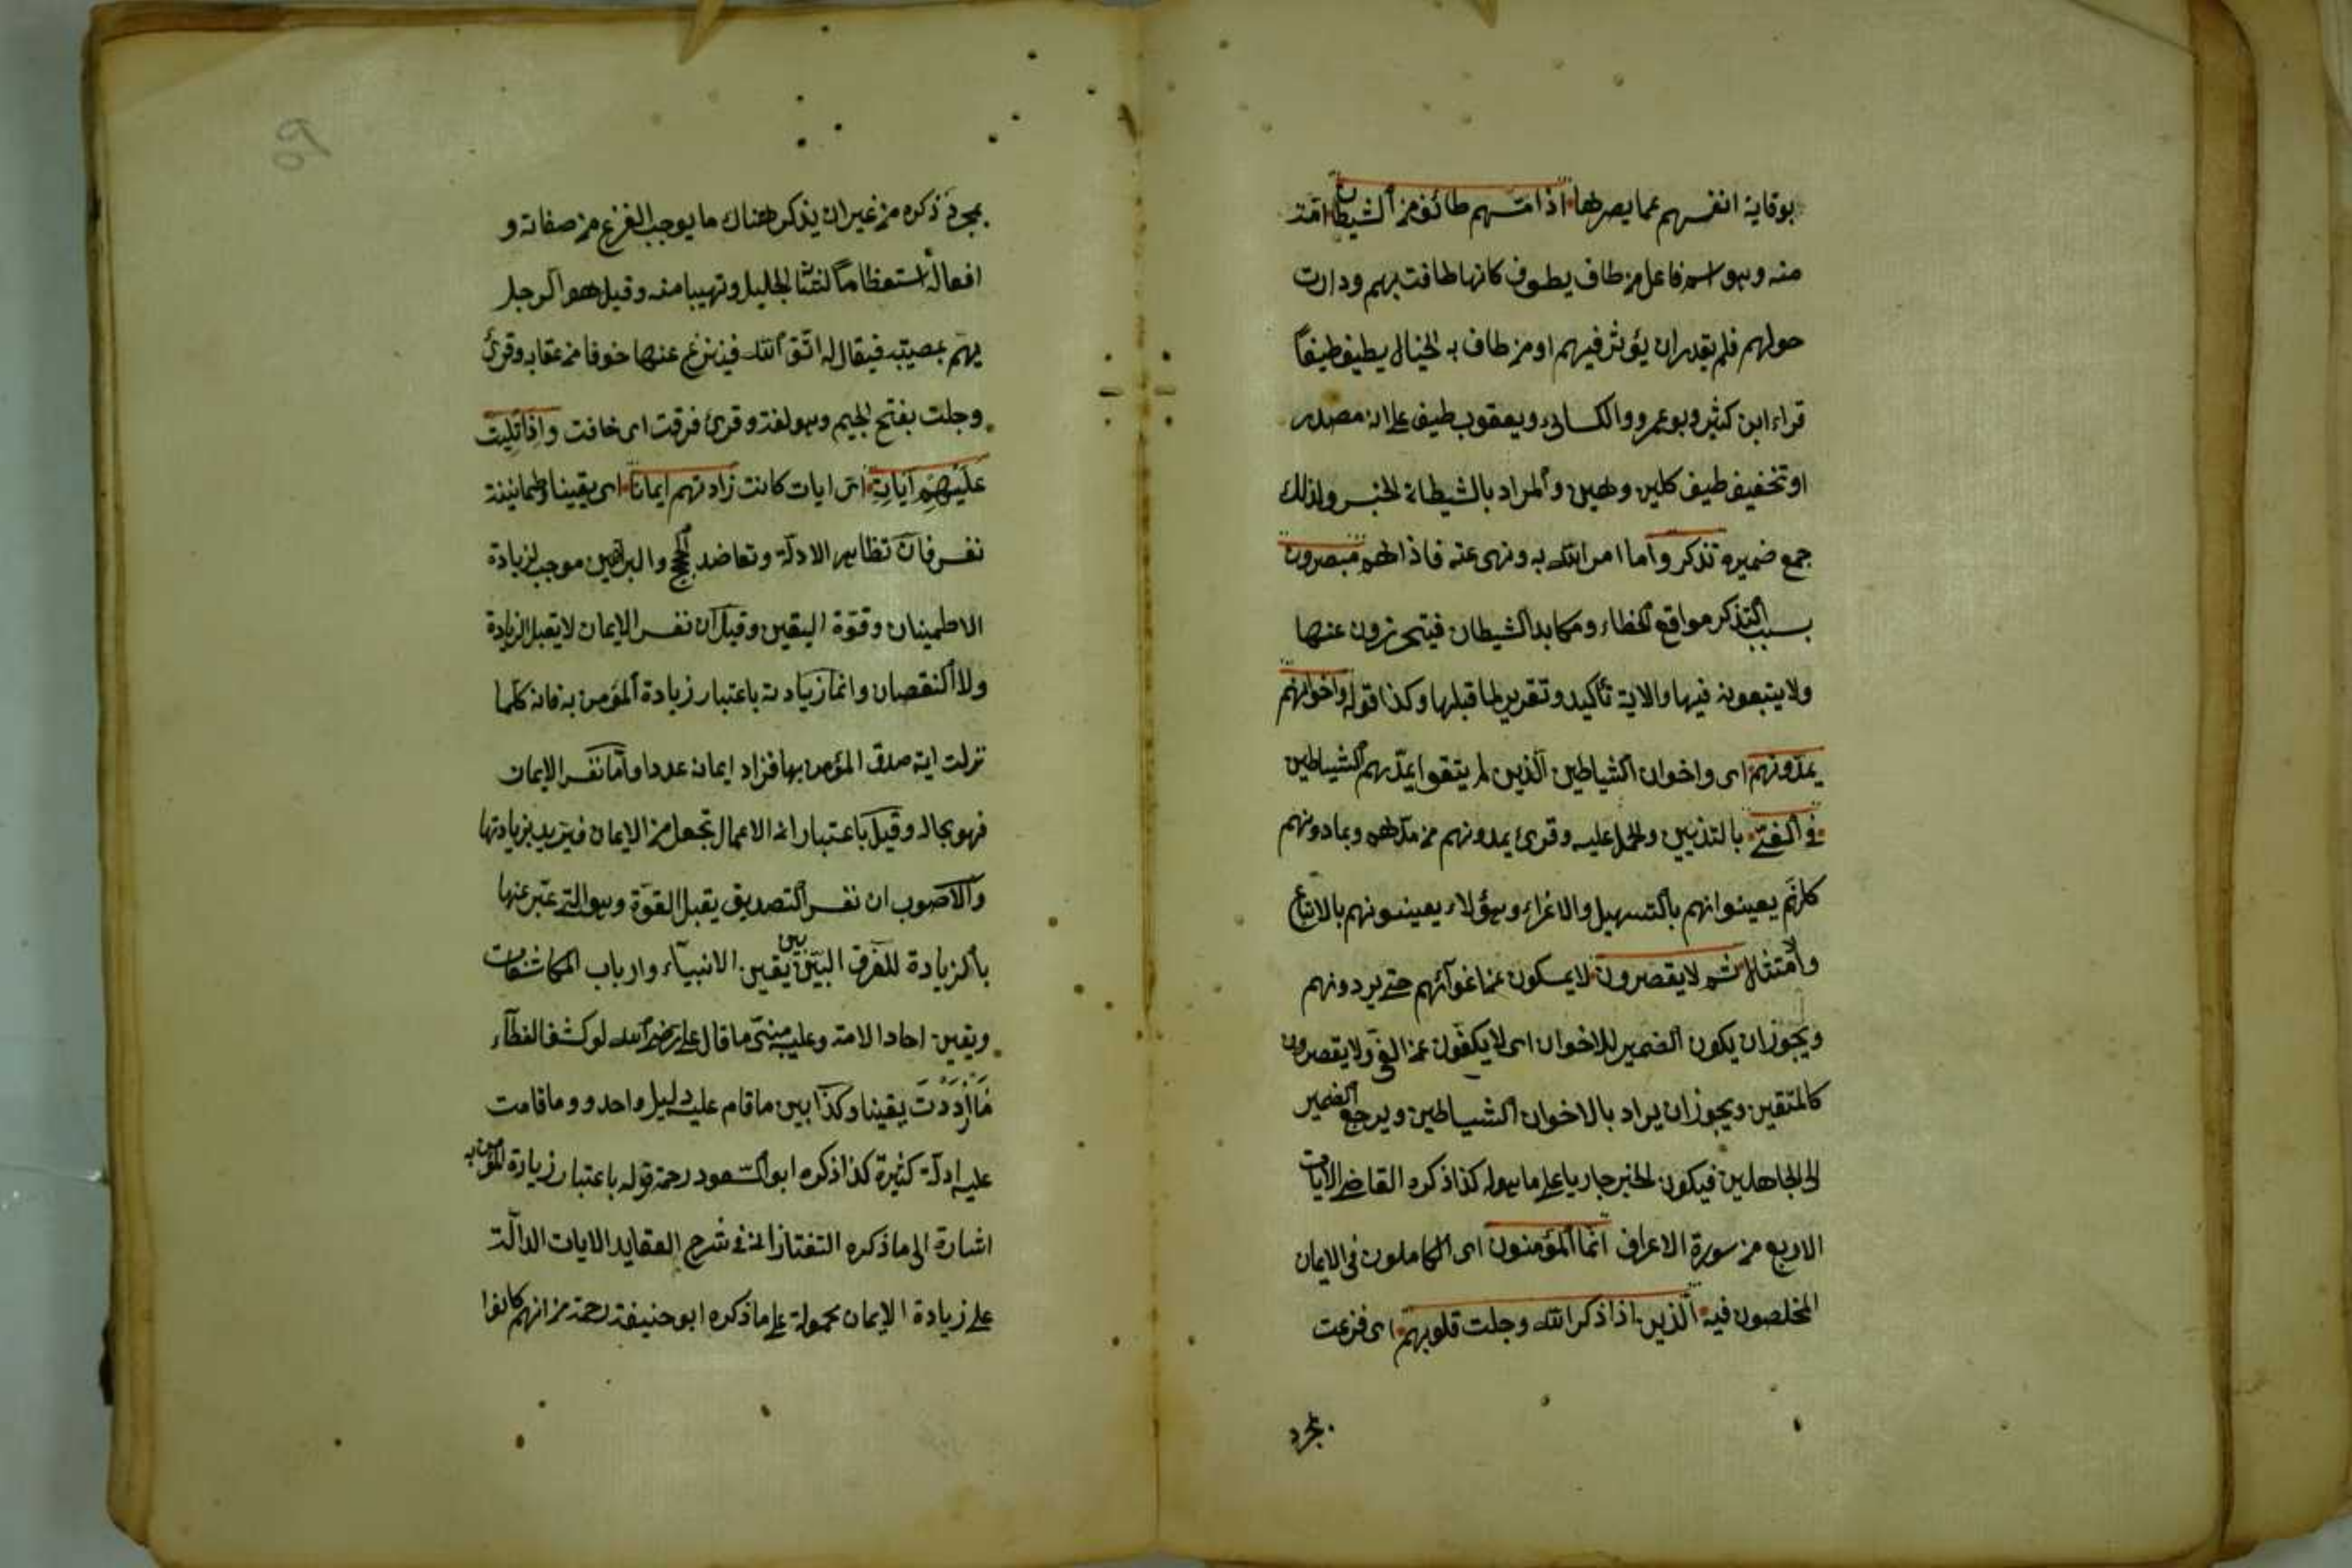 بوقاية انفسهم عما يضرها اذا مسهم طائف من الشيطان لمة
منه وهو اسم فاعل من طاف يطوف كانها طافت بهم ودارت
حولهم فلم يقدر ان يؤثر فيهم او من طاف به الخيال يطيف طيفاً
قراء ابن كثير وبو عمرو والكسائى ويعقوب طيف على انه مصدر
او تخفيف طيف كلين وهين والمراد بالشيطان الجنس ولذلك
جمع ضميره تذكروا ما امر الله به ونهى عنه فاذا هم مبصرون
بسبب التذكر مواقع الخطاء ومكايد الشيطان فيتحرزون عنها
ولا يتبعونه فيها والاية تأكيد وتقرير لما قبلها وكذا قوله واخوانهم
يمدونهم اى واخوان الشياطين الذين لم يتقوا يمدهم الشياطين
فى الغى بالتزيين والحمل عليه وقرئ يمدونهم من مد هم ويمادونهم
كانهم يعينوانهم بالتسهيل والاغراء وهؤلاء يعينونهم بالاتباع
والامتثال ثم لا يقصرون لا يمسكون عن اغوآئهم حتى يردونهم
ويجوز ان يكون الضمير للاخوان اى لا يكفون عن الغى ولا يقصرون
كالمتقين ويجوز ان يراد بالاخوان الشياطين ويرجع الضمير
الى الجاهلين فيكون الخبر جاريا على ما هو له كذا ذكره القاضى الايات
الاربع من سورة الاعراف انما المؤمنون اى الكاملون فى الايمان
المخلصون فيه الذين اذا ذكر الله وجلت قلوبهم اى فزعت
بمجرد
بمجرد ذكره من غير ان يذكر هناك ما يوجب الفزع من صفاته و
افعاله استعظاما لشأنه الجليل وتهيبا منه وقيل هو الرجل
يهم بمعصية فيقال له اتق الله فينزع عنها خوفا من عقابه وقرئ
وجلت بفتح الجيم وهو لغة وقرئ فرقت اى خافت واذا تليت
عليهم آياته اى ايات كانت زادتهم ايمانا اى يقينا وطمانينة
نفس فان تظاهر الادلة وتعاضد الحجج والبراهين موجب لزيادة
الاطمينان وقوة اليقين وقيل ان نفس الايمان لا يقبل الزيادة
ولا النقصان وانما زيادته باعتبار زيادة المؤمن به فانه كلما
نزلت اية صدق المؤمن بها فزاد ايمانه عددا واما نفس الايمان
فهو بحاله وقيل باعتبار ان الاعمال تجعل من الايمان فيزيد بزيادتها
والاصوب ان نفس التصديق يقبل القوة وهو التى عبر عنها
بالزيادة للفرق البين بين يقين الانبيآء وارباب المكاشفات
ويقين احاد الامة وعليه مبنى ما قال على رضى الله لو كشف الغطآء
مَا ازْدَدْتُ يقينا وكذا بين ما قام عليه دليل واحد وو ما قامت
عليه ادلة كثيرة كذا ذكره ابو السعود رحمه قوله باعتبار زيادة المؤمن به
اشارة الى ما ذكره التفتازانى فى شرح العقايد الايات الدالة
على زيادة الايمان محمولة على ما ذكره ابو حنيفة رحمه من انهم كانوا